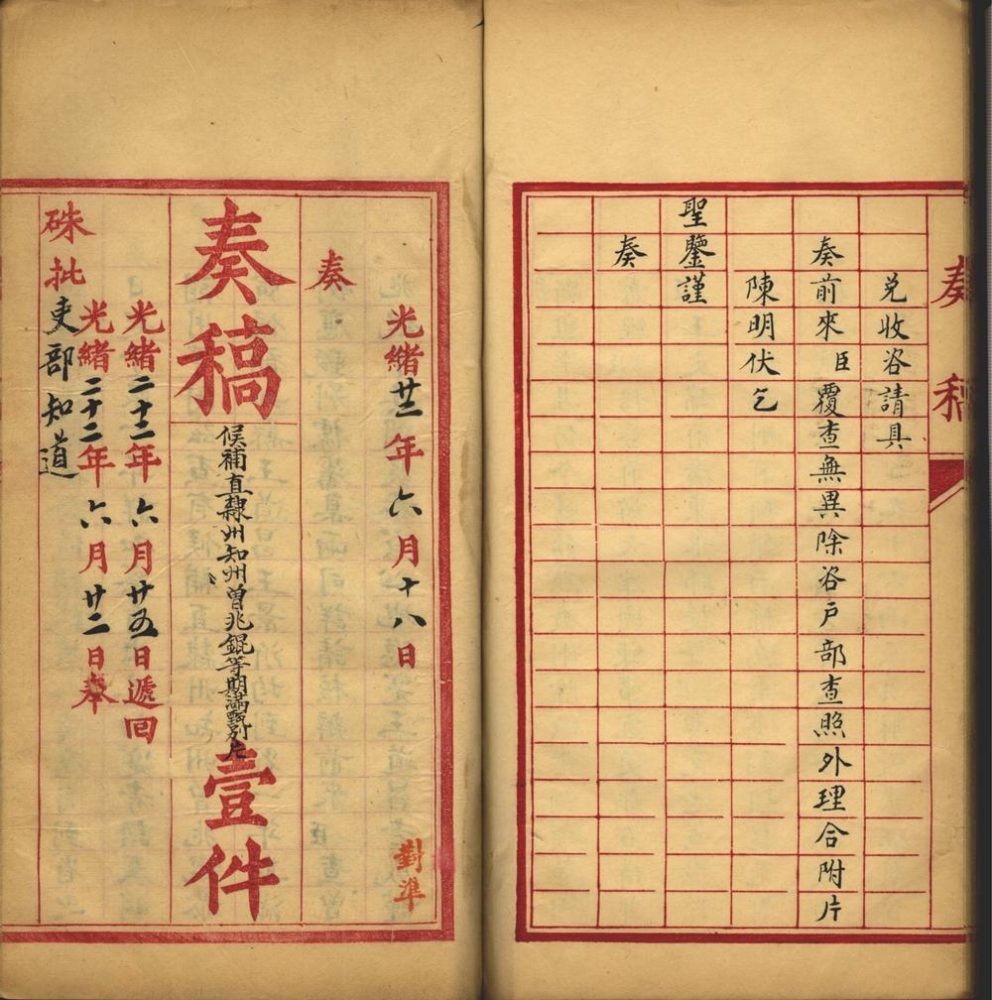 奏稿
兌收咨請具
奏前來臣覆查無異除咨戶部查照外理合附片
陳明伏乞
聖鑒謹
奏
光緒廿二年六月十八日 對準
奏
奏稿 候補直隸州知州曾兆錕等期滿甄別片 壹件
光緒二十二年六月廿五日遞回
光緒二十二年六月廿二日奉
硃批吏部知道